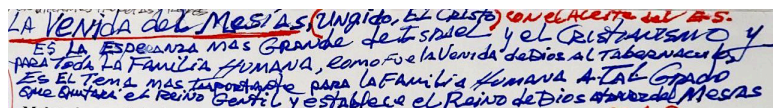 LA VENIDA del MESÍAS (UNgido, EL CRISTO) CON el ACEITE del E.S.
ES LA ESPERANZA MAS GRANDE de ISRAEL y el CRISTIANISMO y
PARA TODA LA FAMILIA HUMANA, COMO FUE la Venida de Dios AL TABERNACULOS
ES EL TEMA MAS IMPORTANTE PARA LA FAMILIA HUMANA A TAL GRADO
QUE QUITARA el REINO GENTIL y establece el Reino de Dios MESIAS